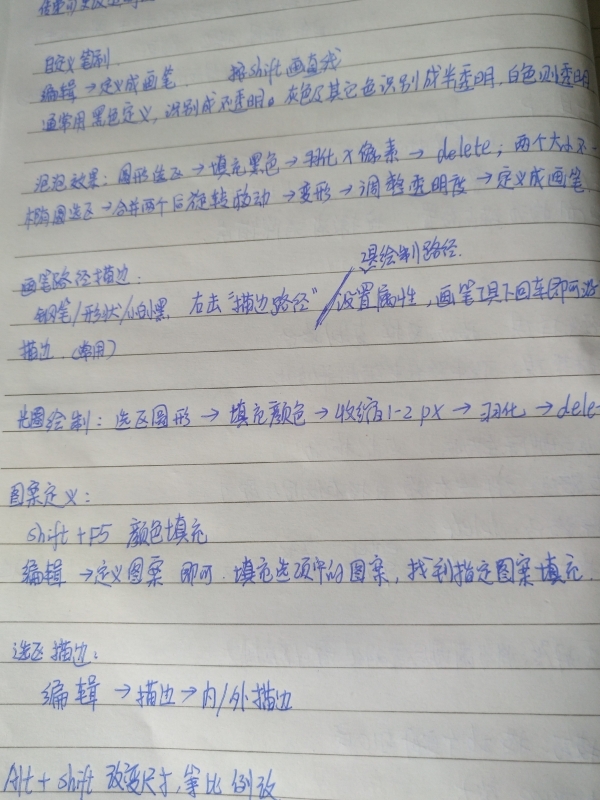 自定义笔刷
编辑→定义成画笔 按shift画直线
通常用黑色定义,识别成不透明。灰色及其它色识别成半透明,白色则透明
泡泡效果:圆形选区→填充黑色→羽化X像素→delete;两个大小不一
椭圆选区→合并两个后旋转移动→变形→调整透明度→定义成画笔
画笔路径描边: 提绘制路径.
钢笔/形状/ 右击"描边路径" 设置属性,画笔工具下回车即可
描边.(常用)
光圈绘制:选区圆形→填充颜色→收缩1-2px→羽化→dele
图案定义:
shift+F5 颜色填充
编辑→定义图案 即可.填充选项中的图案,找到指定图案填充.
选区描边:
编辑→描边→内/外描边
Alt+shift 改变尺寸,等比例改